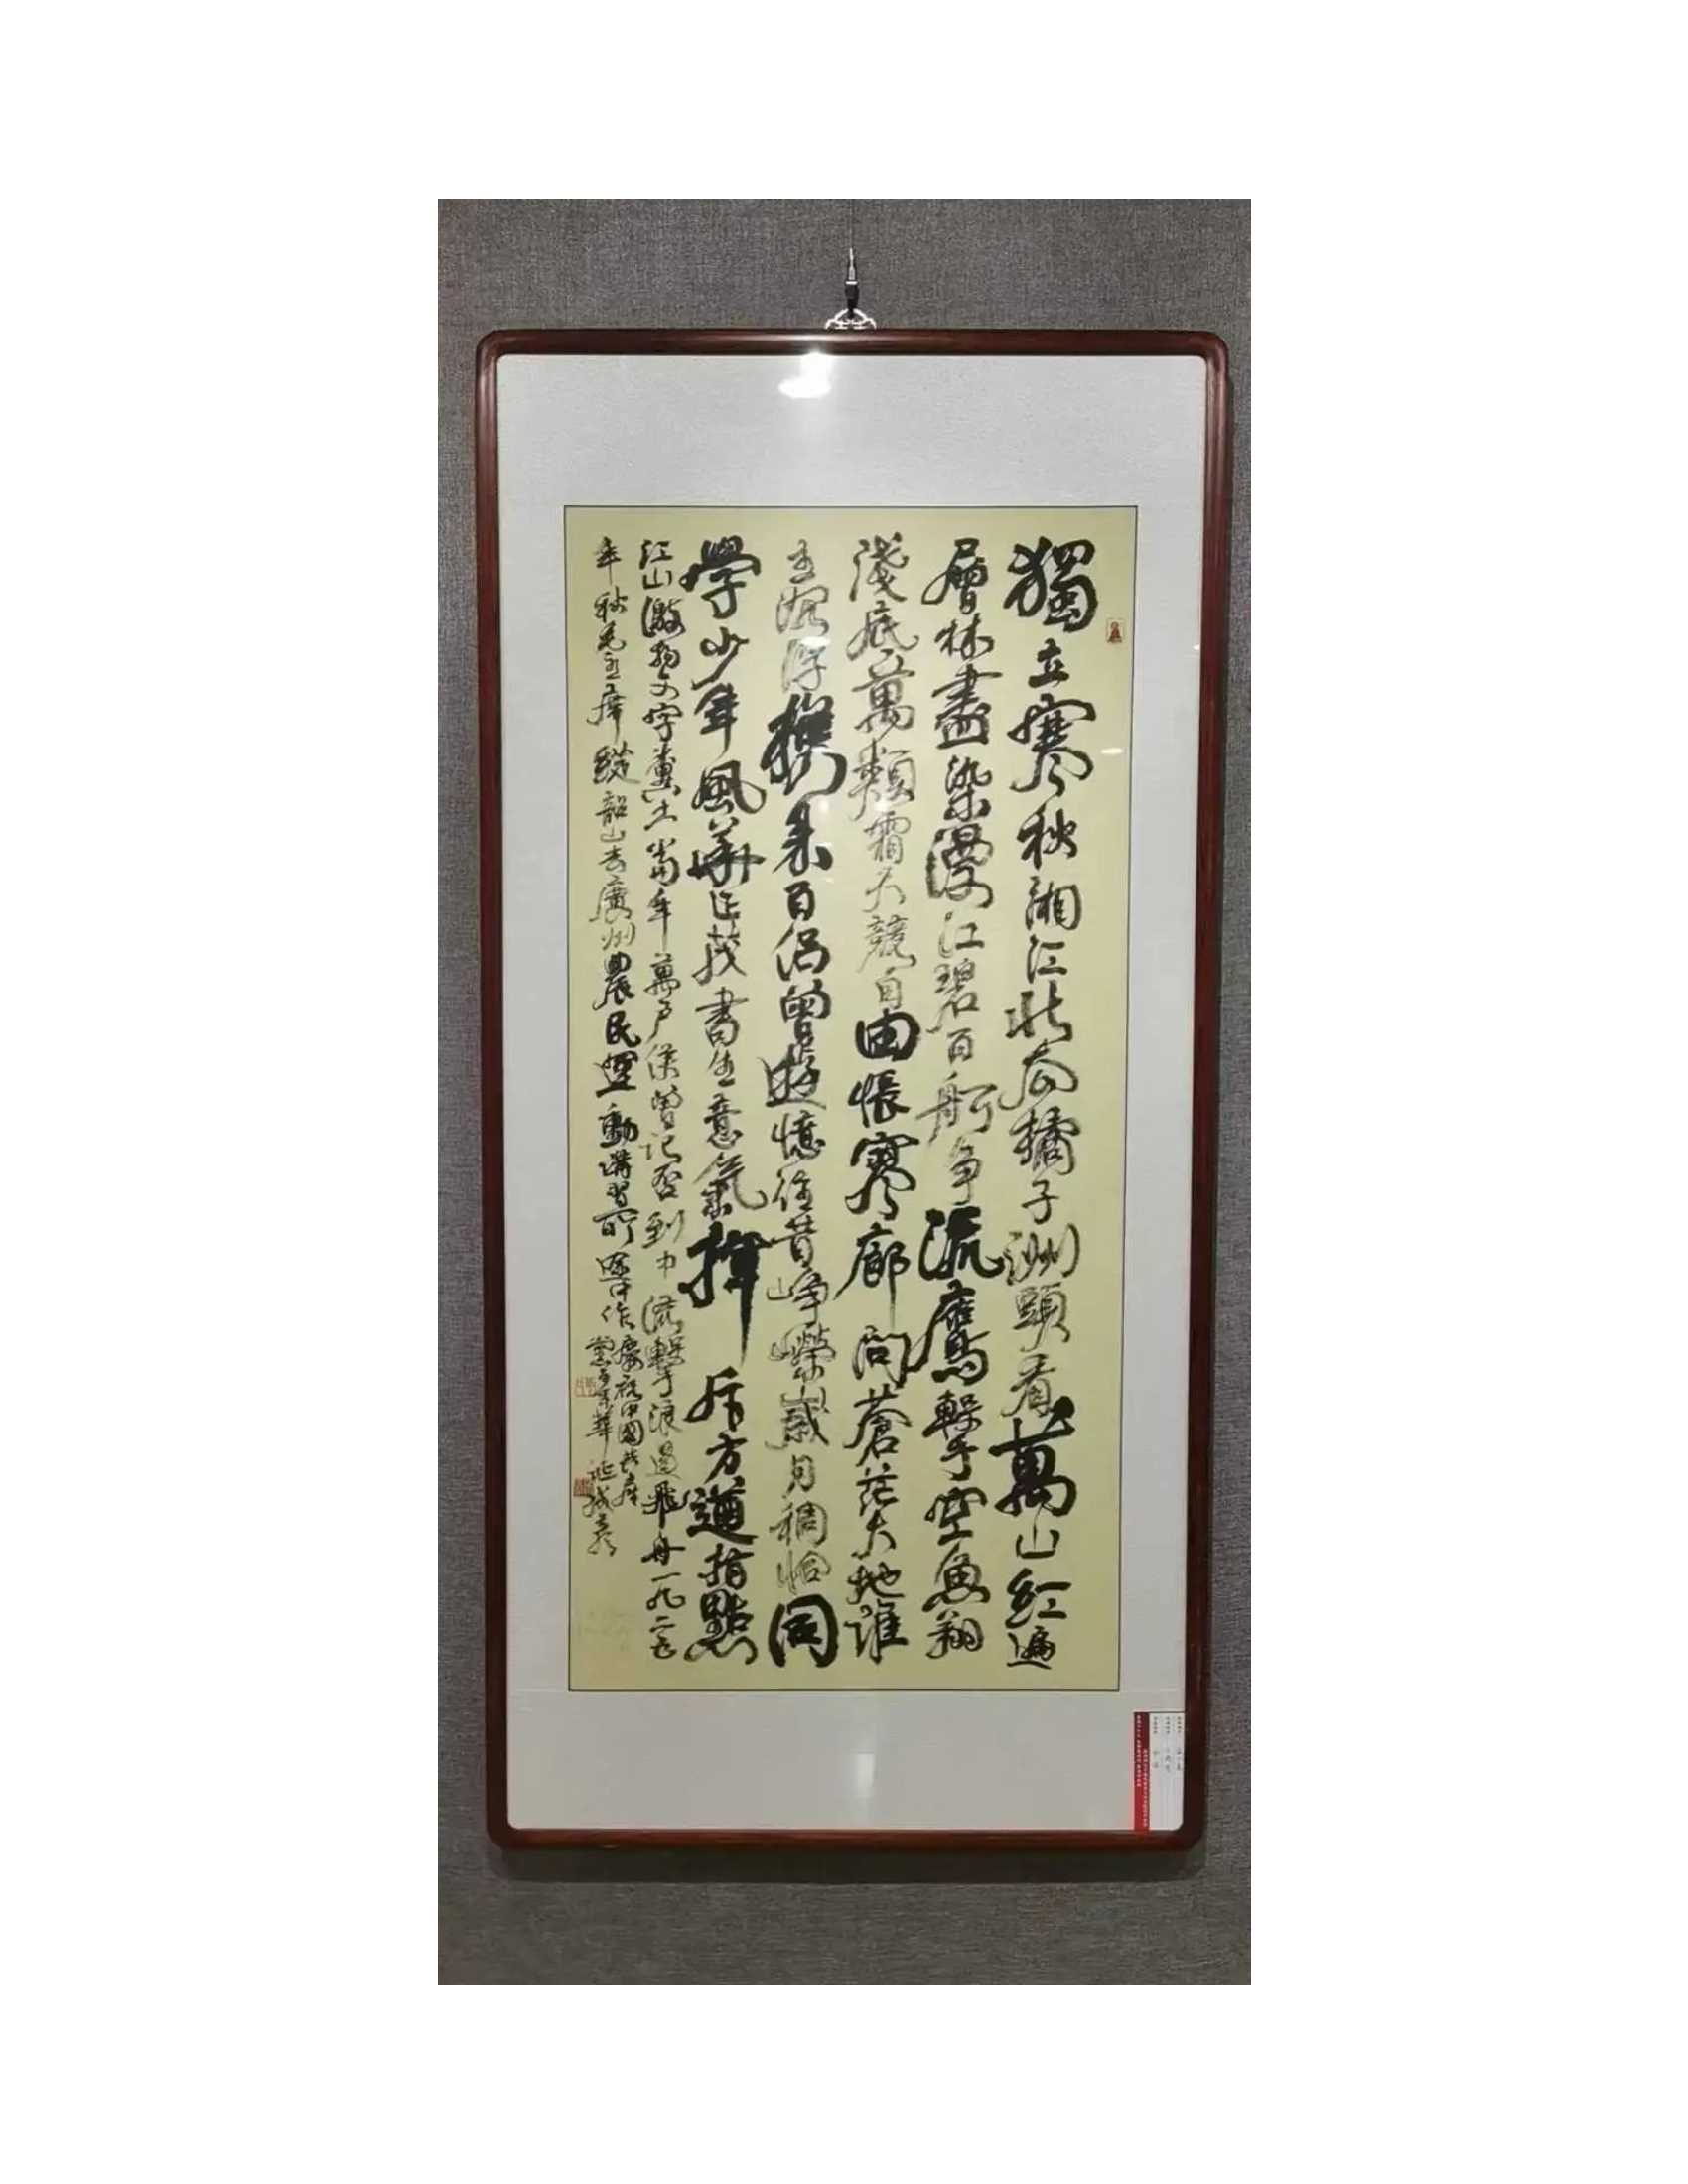 獨立寒秋湘江北去橘子洲頭看萬山紅遍
層林盡染漫江碧百舸争流鷹擊空魚翔
淺底萬類霜天競自由悵寥廓問蒼茫大地誰
主沉浮攜來百侣曾遊憶往昔崢嶸歲月稠恰同
學少年風華正茂書生意氣揮斥方遒指點
江山激揚文字糞土當年萬户侯曾记否到中流擊浪遏飛舟一九二五
年秋毛主席從韶山去廣州農民運動講習所途中作
慶祝中國共産
黨百年華誕